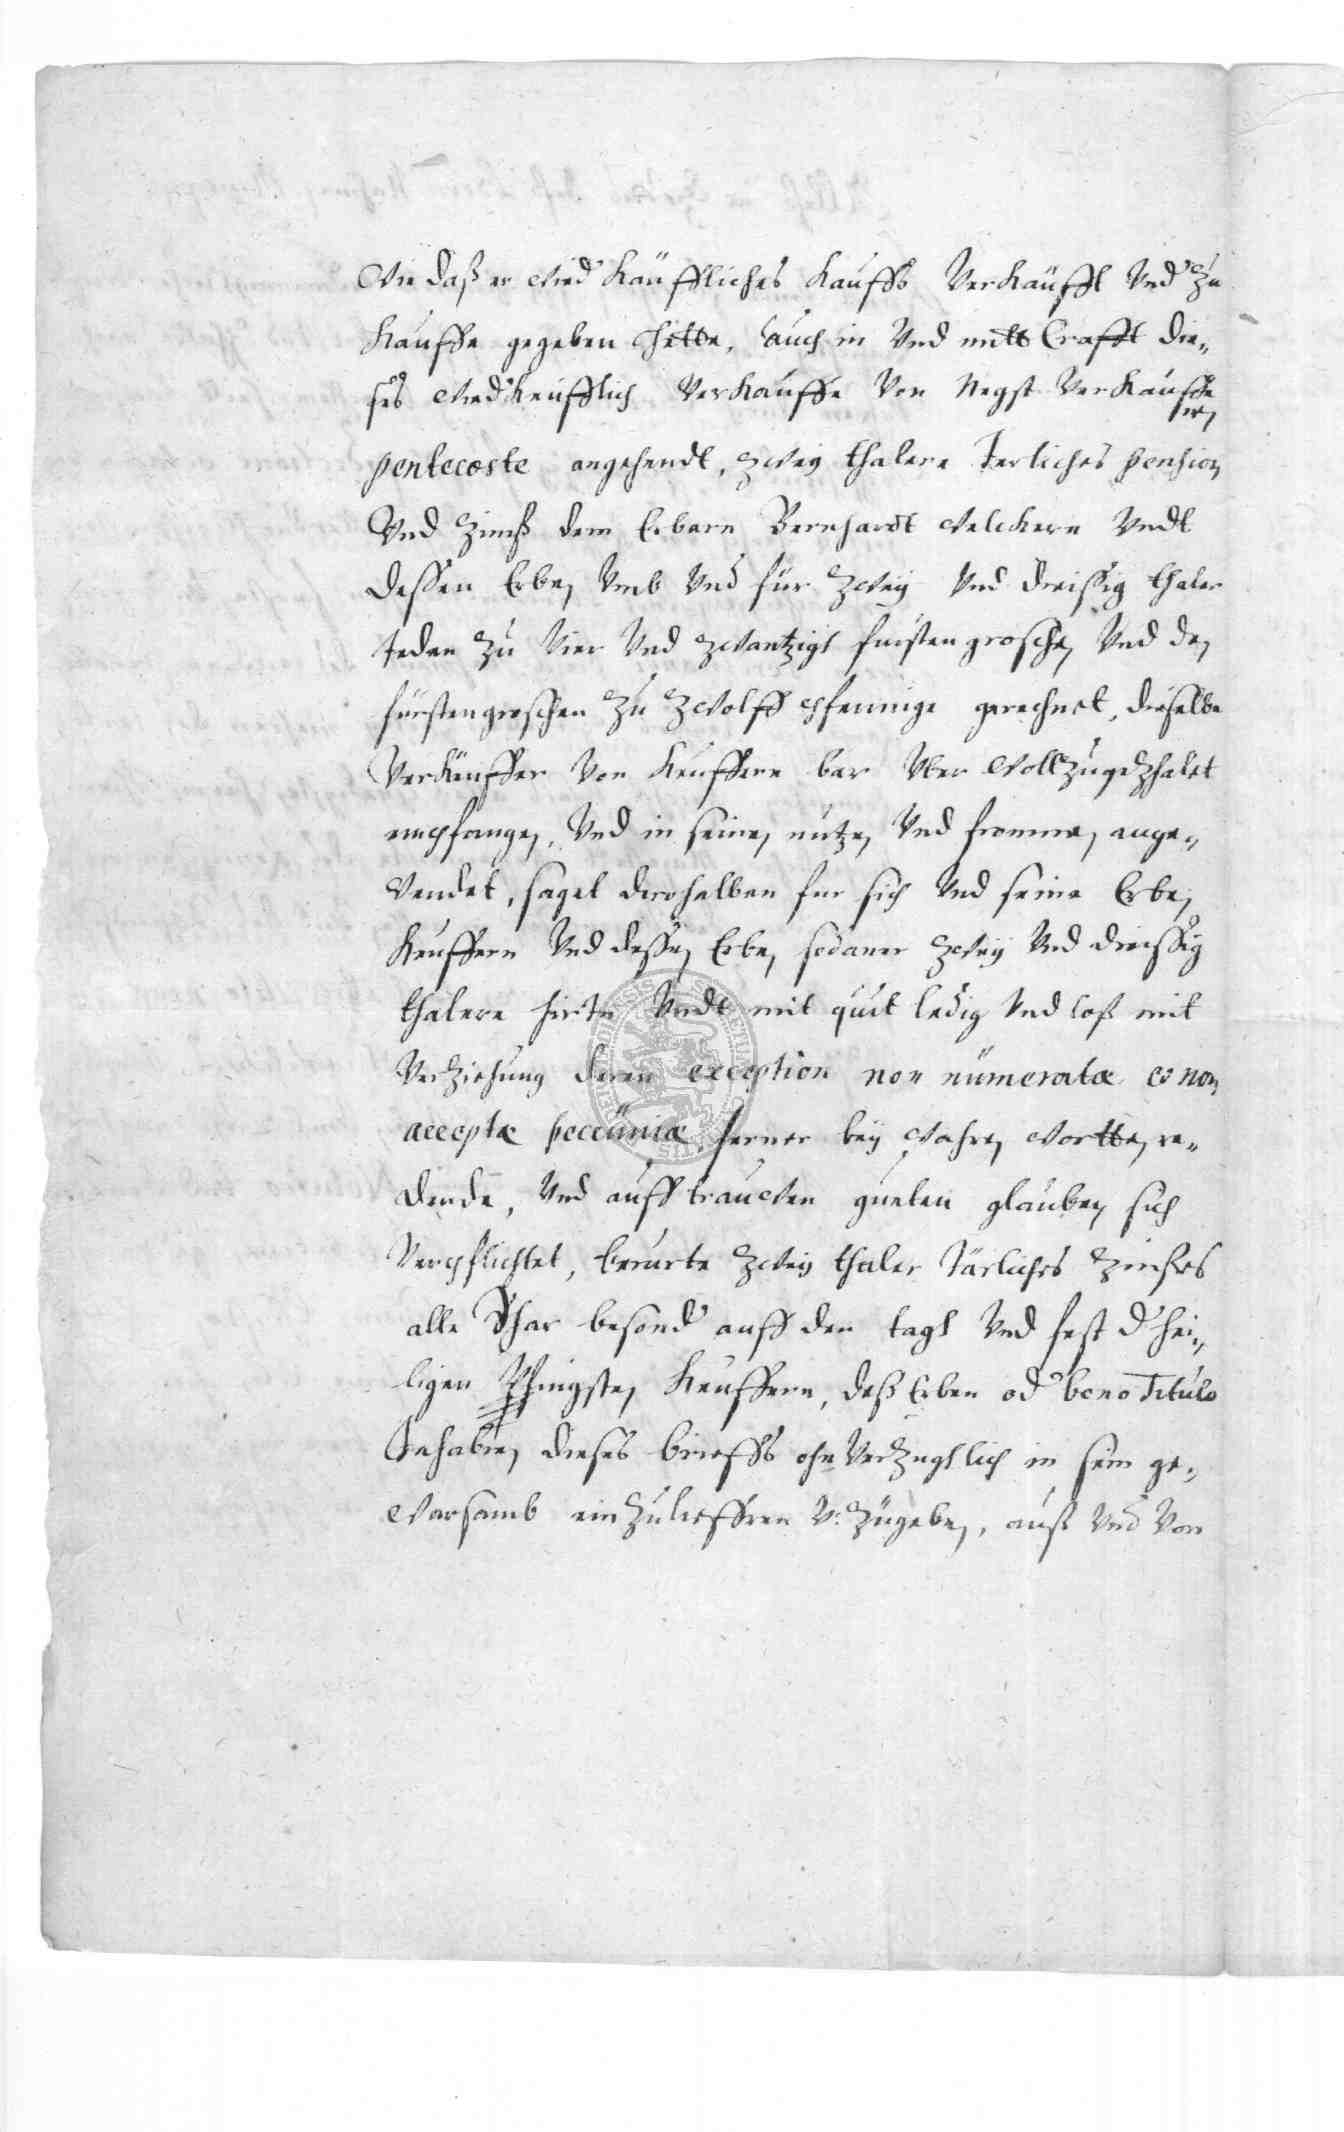 Wie daß er wied' Käuffliches Kauffs Verkäufft Und Zu
Kauffe gegeben hette, auch in Und mitt Crafft die„
ses wied'keufflich Verkauffe Von Negst Verkauffe
Pentecoste angehendt, Zwey thalere Jerliches Pension
Und Zinß dem Erbarn Bernhardt Welckere Undt
dessen Erben Umb Und für Zweÿ Und dreissig thaler
Jeden Zu Vier Und Zwantzigh fursten groschen Und den
fürstengroschen Zu Zwolff Pfennige gerechnet, dieselbe
Verkeuffer Von Keuffern bar Uber
empfangen, Und in seinen nutzen Und frommen ange„
wendet, saget derohalben fur sich Und seine Erben
Keuffern Und dessen Erben sodaner Zweÿ Und dreissig
thalere hirin Undt mit quit ledig Und loß mit
Verziehung deren exception non numeratæ et non
acceptæ pecuniæ, ferner beÿ wahren wortten re„
dende, Und auff trauwen gueten glauben sich
Verpflichtet, berurte Zwey thaler Järliches Zinses
alle Jhar besond' auff den tagh Und fest d' hei„
ligen Pfingsten Keuffern, deß Erben od' bono Titulo
Inhabern dieses brieffs ohn Verzughlich in sein ge„
warsamb einzulieffren U: Zugeben, auß Und Von